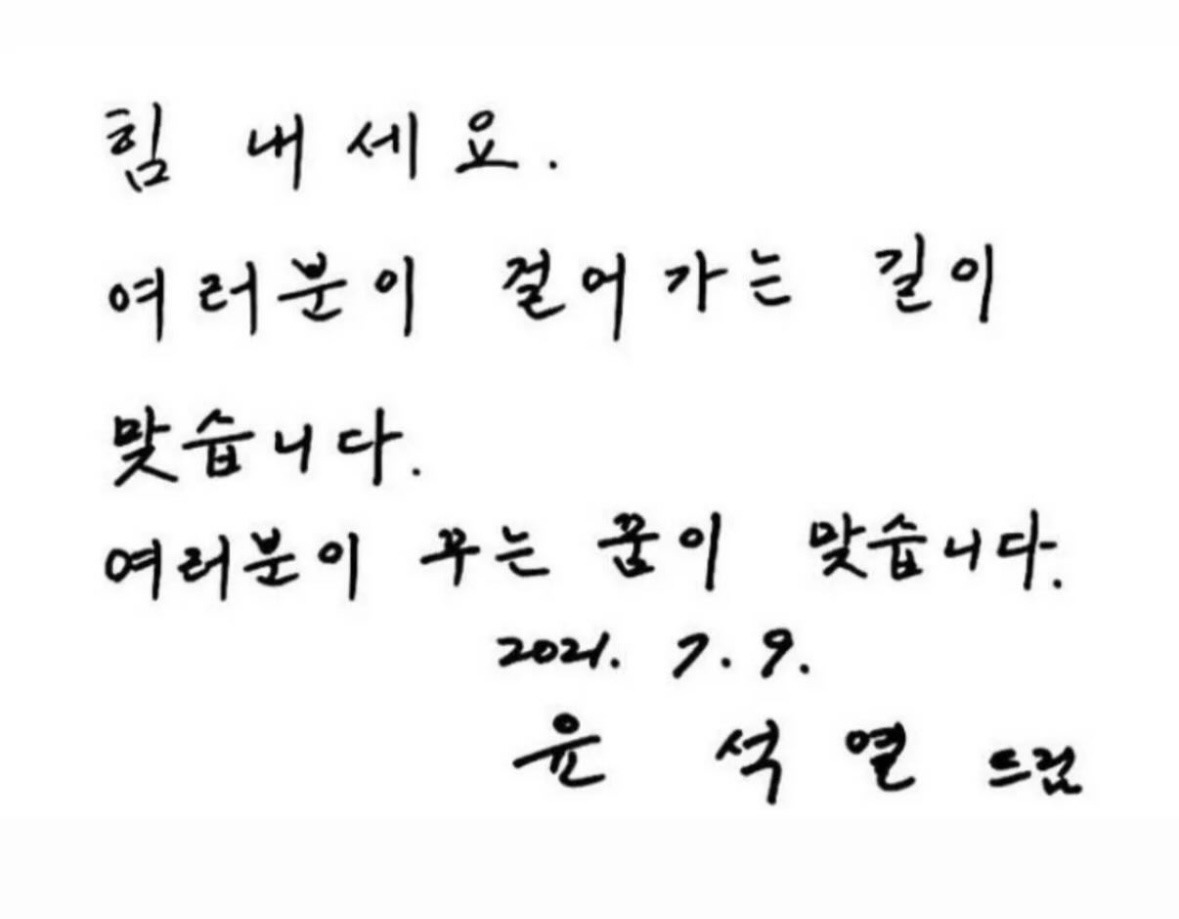 힘 내세요.
여러분이 걸어가는 길이
맞습니다.
여러분이 꾸는 꿈이 맞습니다.
2021. 7. 9.
윤 석 열 드림